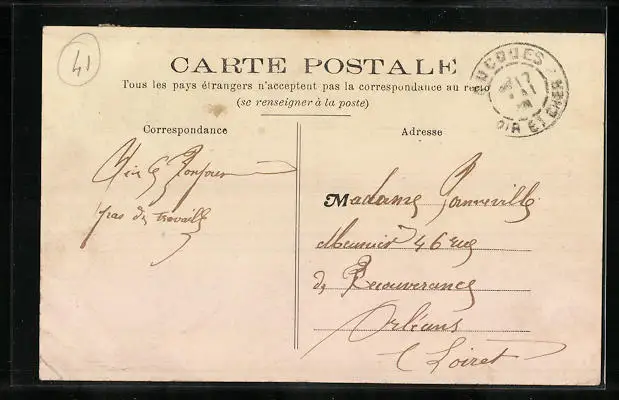 41
CARTE POSTALE
Tous les pays étrangers n'acceptent pas la correspondance au recto
(se renseigner à la poste)
OUCQUES
17
LOIR ET CHER
Correspondance
Bonjour
pas de travaille
Adresse
Madame
Meunier 46 rue
de
Orléans
Loiret